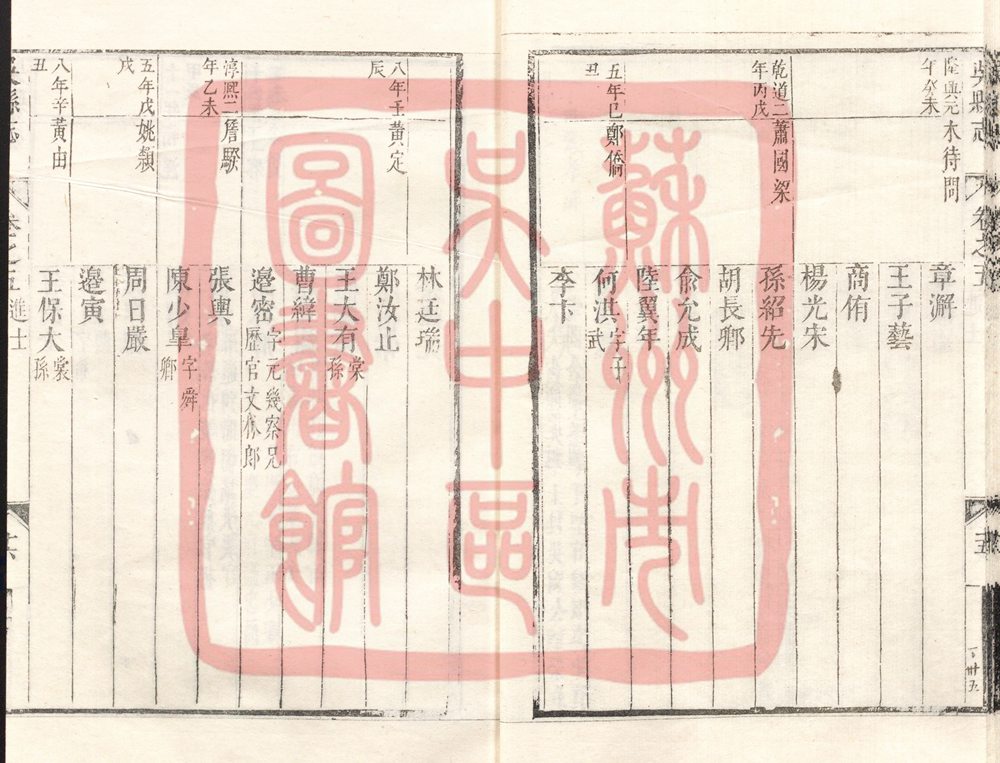 吳縣志
卷之五
十五
隆興元年癸未
木待問
章澥
王子藝
商侑
楊光宋
乾道二年丙戌
蕭國梁
孫紹先
胡長卿
俞允成
陸翼年
五年己丑
鄭僑
何淇 字子武
李卞
林廷瑞
八年壬辰
黃定
鄭汝止
王大有 棠孫
曹緯
邉密 字元幾察兄歷官文林郎
淳熙二年乙未
詹騤
張輿
陳少皐 字舜卿
五年戊戌
姚潁
周日嚴
邉寅
八年辛丑
黃由
王保大 裳孫
吳縣志
卷之五 進士
十六
蘇州市
吳中區
圖書館